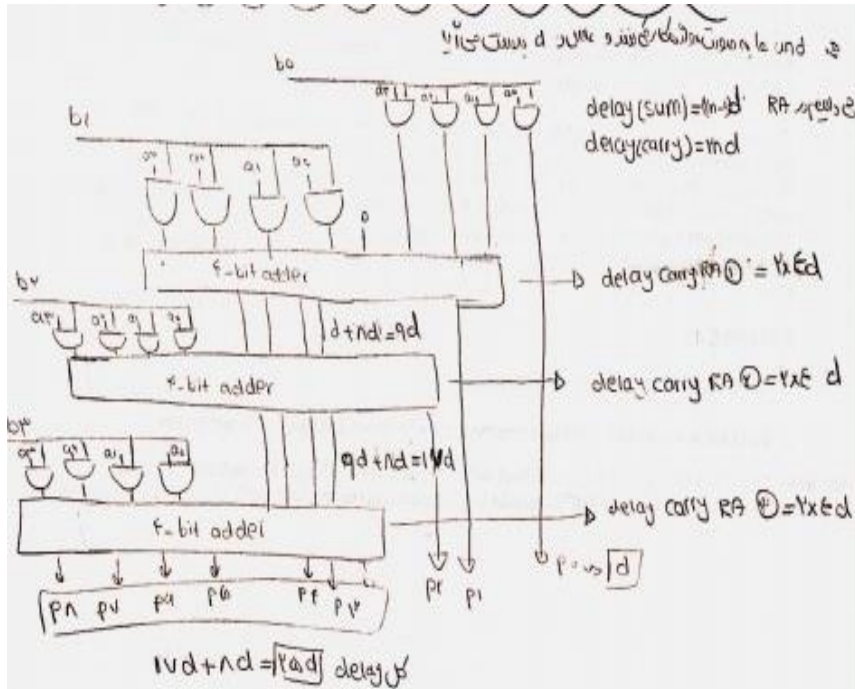 b۰
delay(sum)=(۲n-۱)d RA
delay(carry)=۲nd
b۱
a۳ a۲ a۱ a۰
a۳ a۲ a۱ a۰
۰
۴-bit adder
delay carry RA ① = ۲×٤d
b۲
a۳ a۲ a۱ a۰
d+۸d=۹d
۴-bit adder
delay carry RA ② = ۲×٤ d
b۳
a۳ a۲ a۱ a۰
۹d+۸d=۱۷d
۴-bit adder
delay carry RA ③ = ۲×٤d
p۸ p۷ p۶ p۵ p۴ p۳ p۲ p۱ p۰ d
۱۷d+۸d=۲۵d delay کل